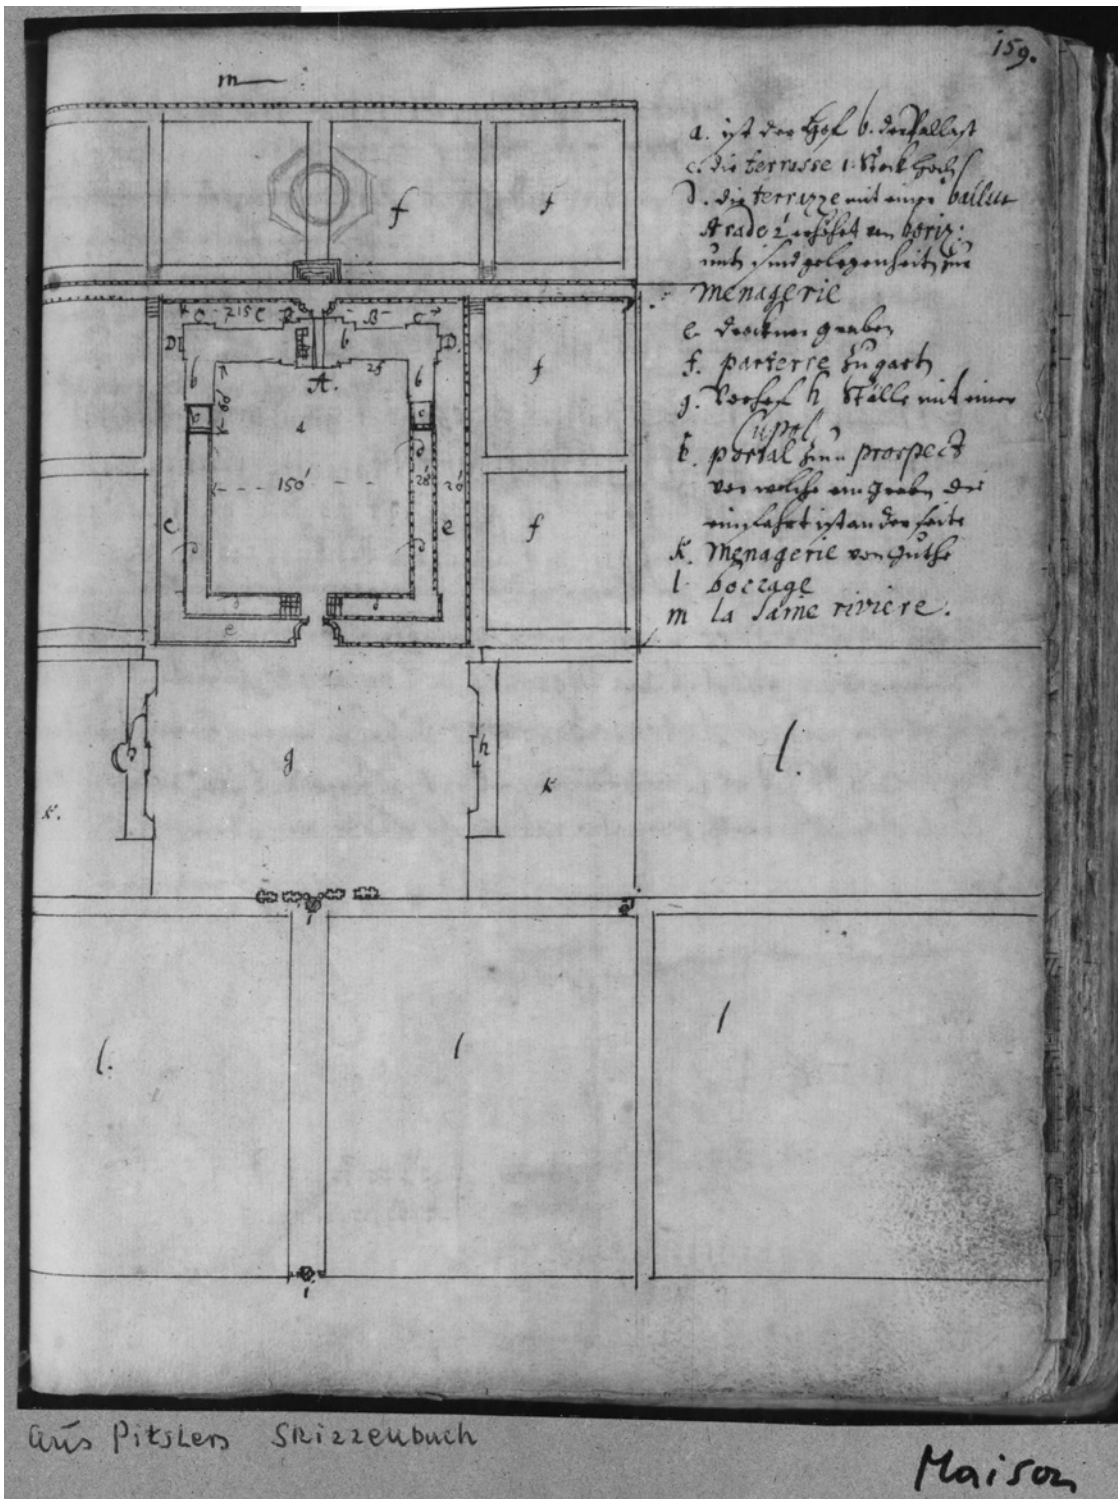 159.
m
a. ist der Hof b. der Pallast
c. die terrasse 1. Stock hoch
D. die terrazze mit einer ballu
strade 2' erhöhet von horiz:
unt sind gelegenheit zur
menagerie
e. druckner graben
f. parterre zu gart
g. Vorhof h Ställe mit einer
Cupol
portal zum prospect
vor welche ein graben die
einfahrt ist an der seite
K. Menagerie von
l. boccage
m la saine riviere.
f f
C 215 C B B C
D b D.
b b
A. 25
60
f
a
150' 28' 20'
e e
f
e
h g h
K. K l.
i
l. l l
i
aus Pitzlers Skizzenbuch
Maison